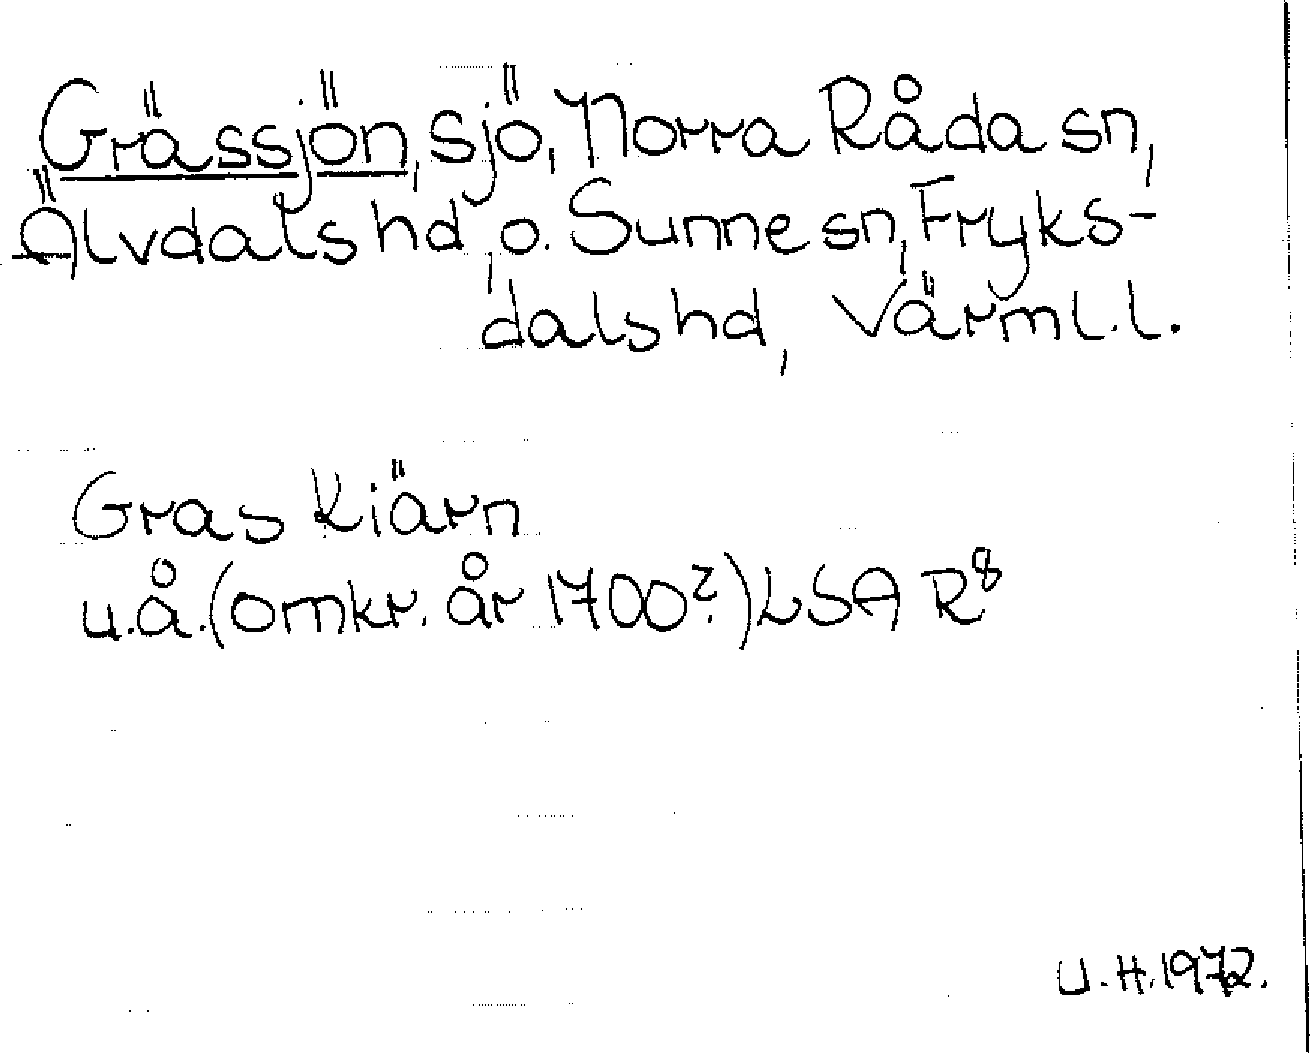 Grässjön, sjö, Norra Råda sn,
Älvdals hd, o. Sunne sn, Fryks-
dals hd, Värml. l.
Gras Kiärn
u.å. (omkr. år 1700?) LSA R⁸
U.H. 1972.